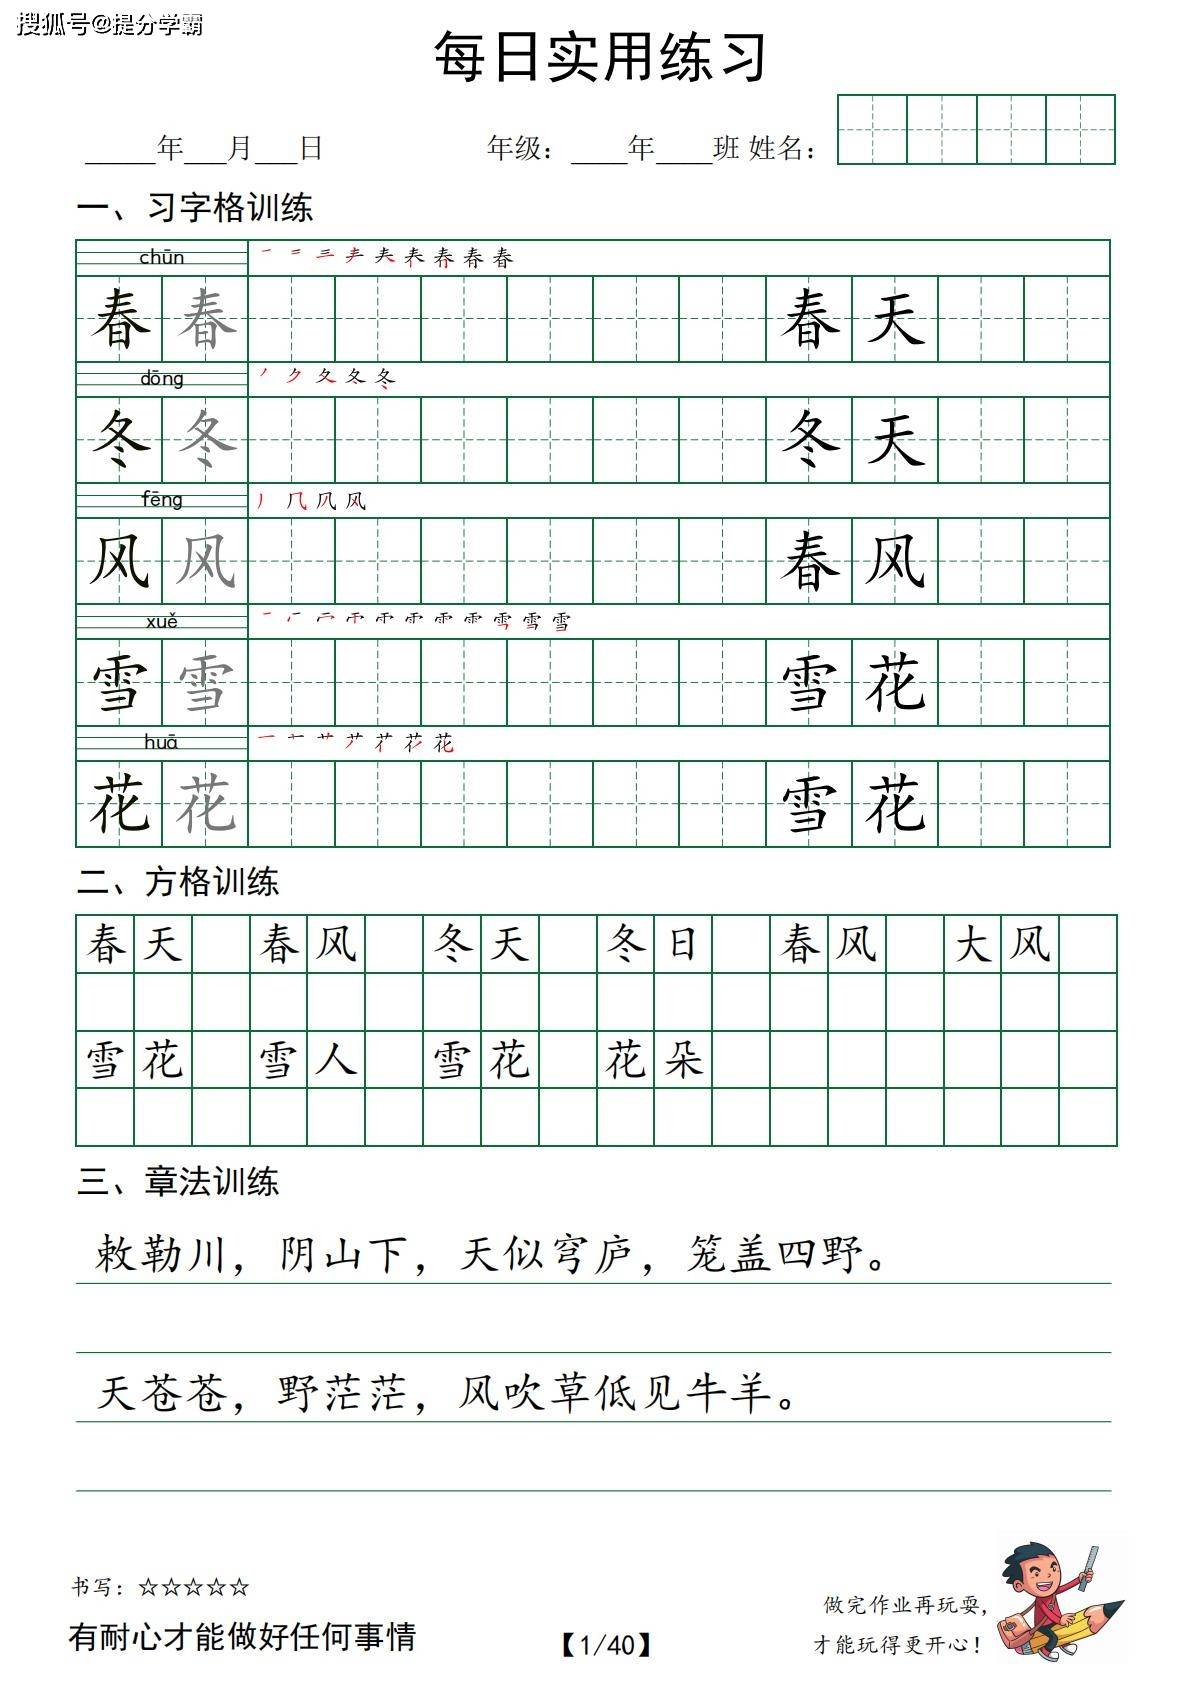 搜狐号@提分学霸
每日实用练习
_____年___月___日 年级：____年____班 姓名：
一、习字格训练
chūn
春 春 春 天
dōng
冬 冬 冬 天
fēng
风 风 春 风
xuě
雪 雪 雪 花
huā
花 花 雪 花
二、方格训练
春天 春风 冬天 冬日 春风 大风
雪花 雪人 雪花 花朵
三、章法训练
敕勒川，阴山下，天似穹庐，笼盖四野。
天苍苍，野茫茫，风吹草低见牛羊。
书写：☆☆☆☆☆
有耐心才能做好任何事情
【1/40】
做完作业再玩耍，
才能玩得更开心！